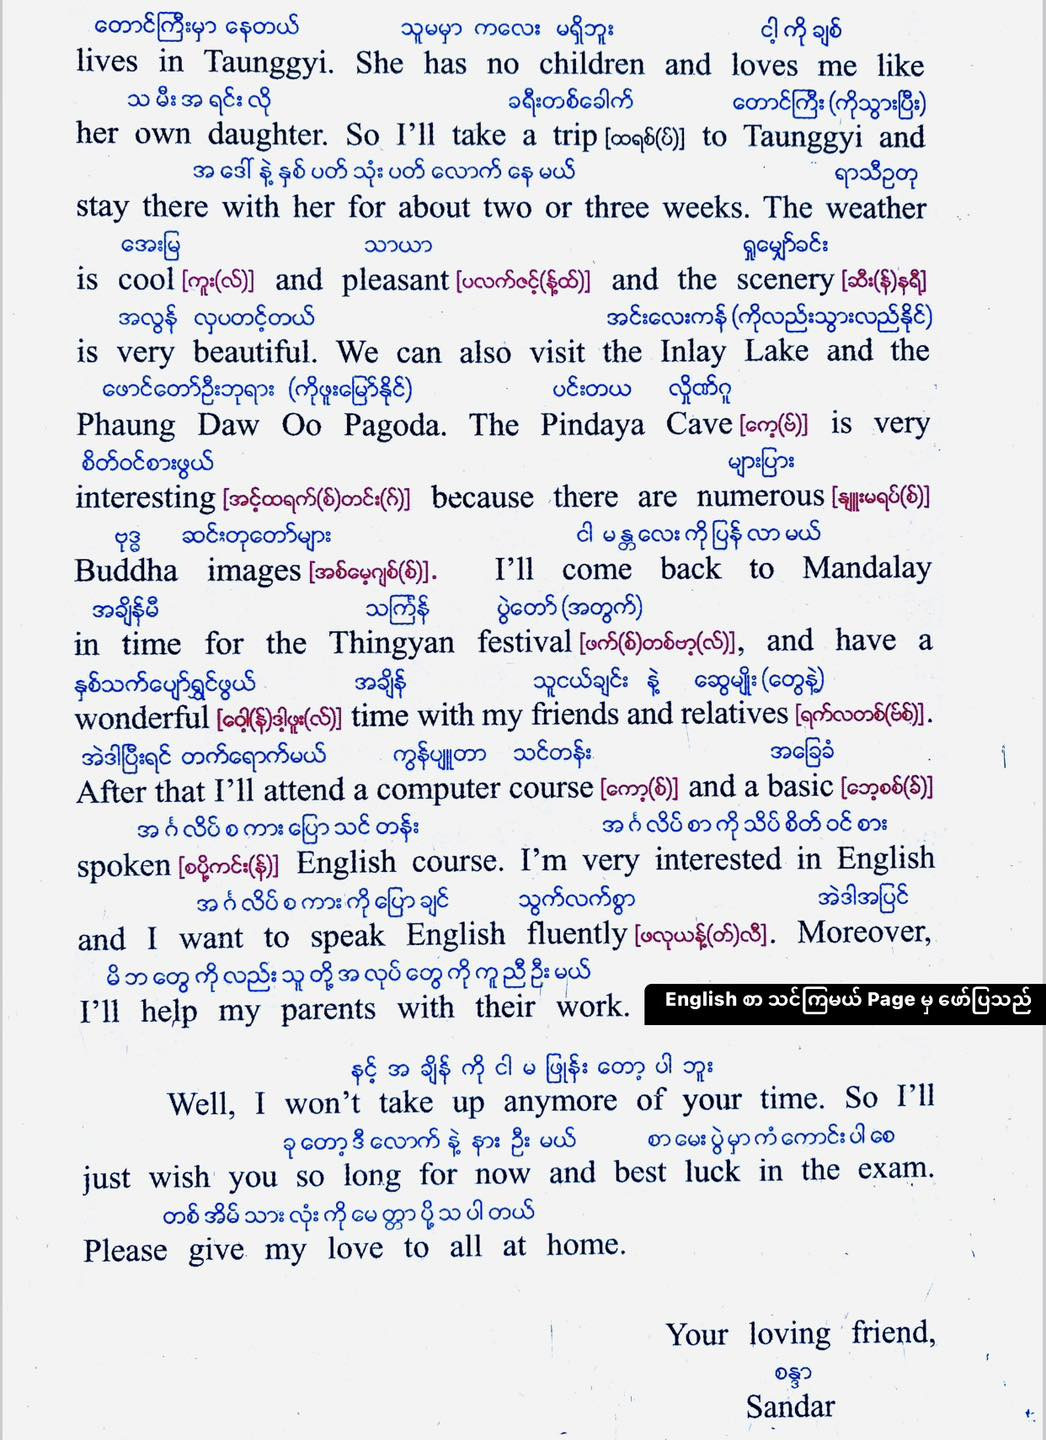 တောင်ကြီးမှာ နေတယ် သူမမှာ ကလေး မရှိဘူး ငါ့ ကို ချစ်
lives in Taunggyi. She has no children and loves me like
သ မီး အ ရင်း လို ခရီးတစ်ခေါက် တောင်ကြီး (ကိုသွားပြီး)
her own daughter. So I'll take a trip [ထရစ်(ပ်)] to Taunggyi and
အ ဒေါ် နဲ့ နှစ် ပတ် သုံး ပတ် လောက် နေ မယ် ရာသီဥတု
stay there with her for about two or three weeks. The weather
အေးမြ သာယာ ရှုမျှော်ခင်း
is cool [ကူး(လ်)] and pleasant [ပလက်ဇင့်(န့်ထ်)] and the scenery [ဆီး(န်)နရီ]
အလွန် လှပတင့်တယ် အင်းလေးကန် (ကိုလည်းသွားလည်နိုင်)
is very beautiful. We can also visit the Inlay Lake and the
ဖောင်တော်ဦးဘုရား (ကိုဖူးမြော်နိုင်) ပင်းတယ လှိုဏ်ဂူ
Phaung Daw Oo Pagoda. The Pindaya Cave [ကေ့(ဗ်)] is very
စိတ်ဝင်စားဖွယ် များပြား
interesting [အင့်ထရက်(စ်)တင်း(ဂ်)] because there are numerous [နျူးမရပ်(စ်)]
ဗုဒ္ဓ ဆင်းတုတော်များ ငါ မန္တလေး ကို ပြန် လာ မယ်
Buddha images [အစ်မေ့ဂျစ်(စ်)]. I'll come back to Mandalay
အချိန်မီ သင်္ကြန် ပွဲတော် (အတွက်)
in time for the Thingyan festival [ဖက်(စ်)တစ်ဗာ့(လ်)], and have a
နှစ်သက်ပျော်ရွှင်ဖွယ် အချိန် သူငယ်ချင်း နဲ့ ဆွေမျိုး (တွေနဲ့)
wonderful [ဝေါ့(န်)ဒါ့ဖူး(လ်)] time with my friends and relatives [ရက်လတစ်(ဗ်စ်)].
အဲဒါပြီးရင် တက်ရောက်မယ် ကွန်ပျူတာ သင်တန်း အခြေခံ
After that I'll attend a computer course [ကော့(စ်)] and a basic [ဘေ့စစ်(ခ်)]
အင်္ဂလိပ် စ ကား ပြော သင် တန်း အင်္ဂလိပ် စာ ကို သိပ် စိတ် ဝင် စား
spoken [စပို့ကင်း(န်)] English course. I'm very interested in English
အင်္ဂလိပ် စ ကား ကို ပြော ချင် သွက်လက်စွာ အဲဒါအပြင်
and I want to speak English fluently [ဖလုယန့်(တ်)လီ]. Moreover,
မိ ဘ တွေ ကို လည်း သူ တို့ အ လုပ် တွေ ကို ကူ ညီ ဦး မယ်
I'll help my parents with their work.
English စာ သင်ကြမယ် Page မှ ဖော်ပြသည်
နင့် အ ချိန် ကို ငါ မ ဖြုန်း တော့ ပါ ဘူး
Well, I won't take up anymore of your time. So I'll
ခု တော့ ဒီ လောက် နဲ့ နား ဦး မယ် စာ မေး ပွဲ မှာ ကံ ကောင်း ပါ စေ
just wish you so long for now and best luck in the exam.
တစ် အိမ် သား လုံး ကို မေ တ္တာ ပို့ သ ပါ တယ်
Please give my love to all at home.
Your loving friend,
စန္ဒာ
Sandar